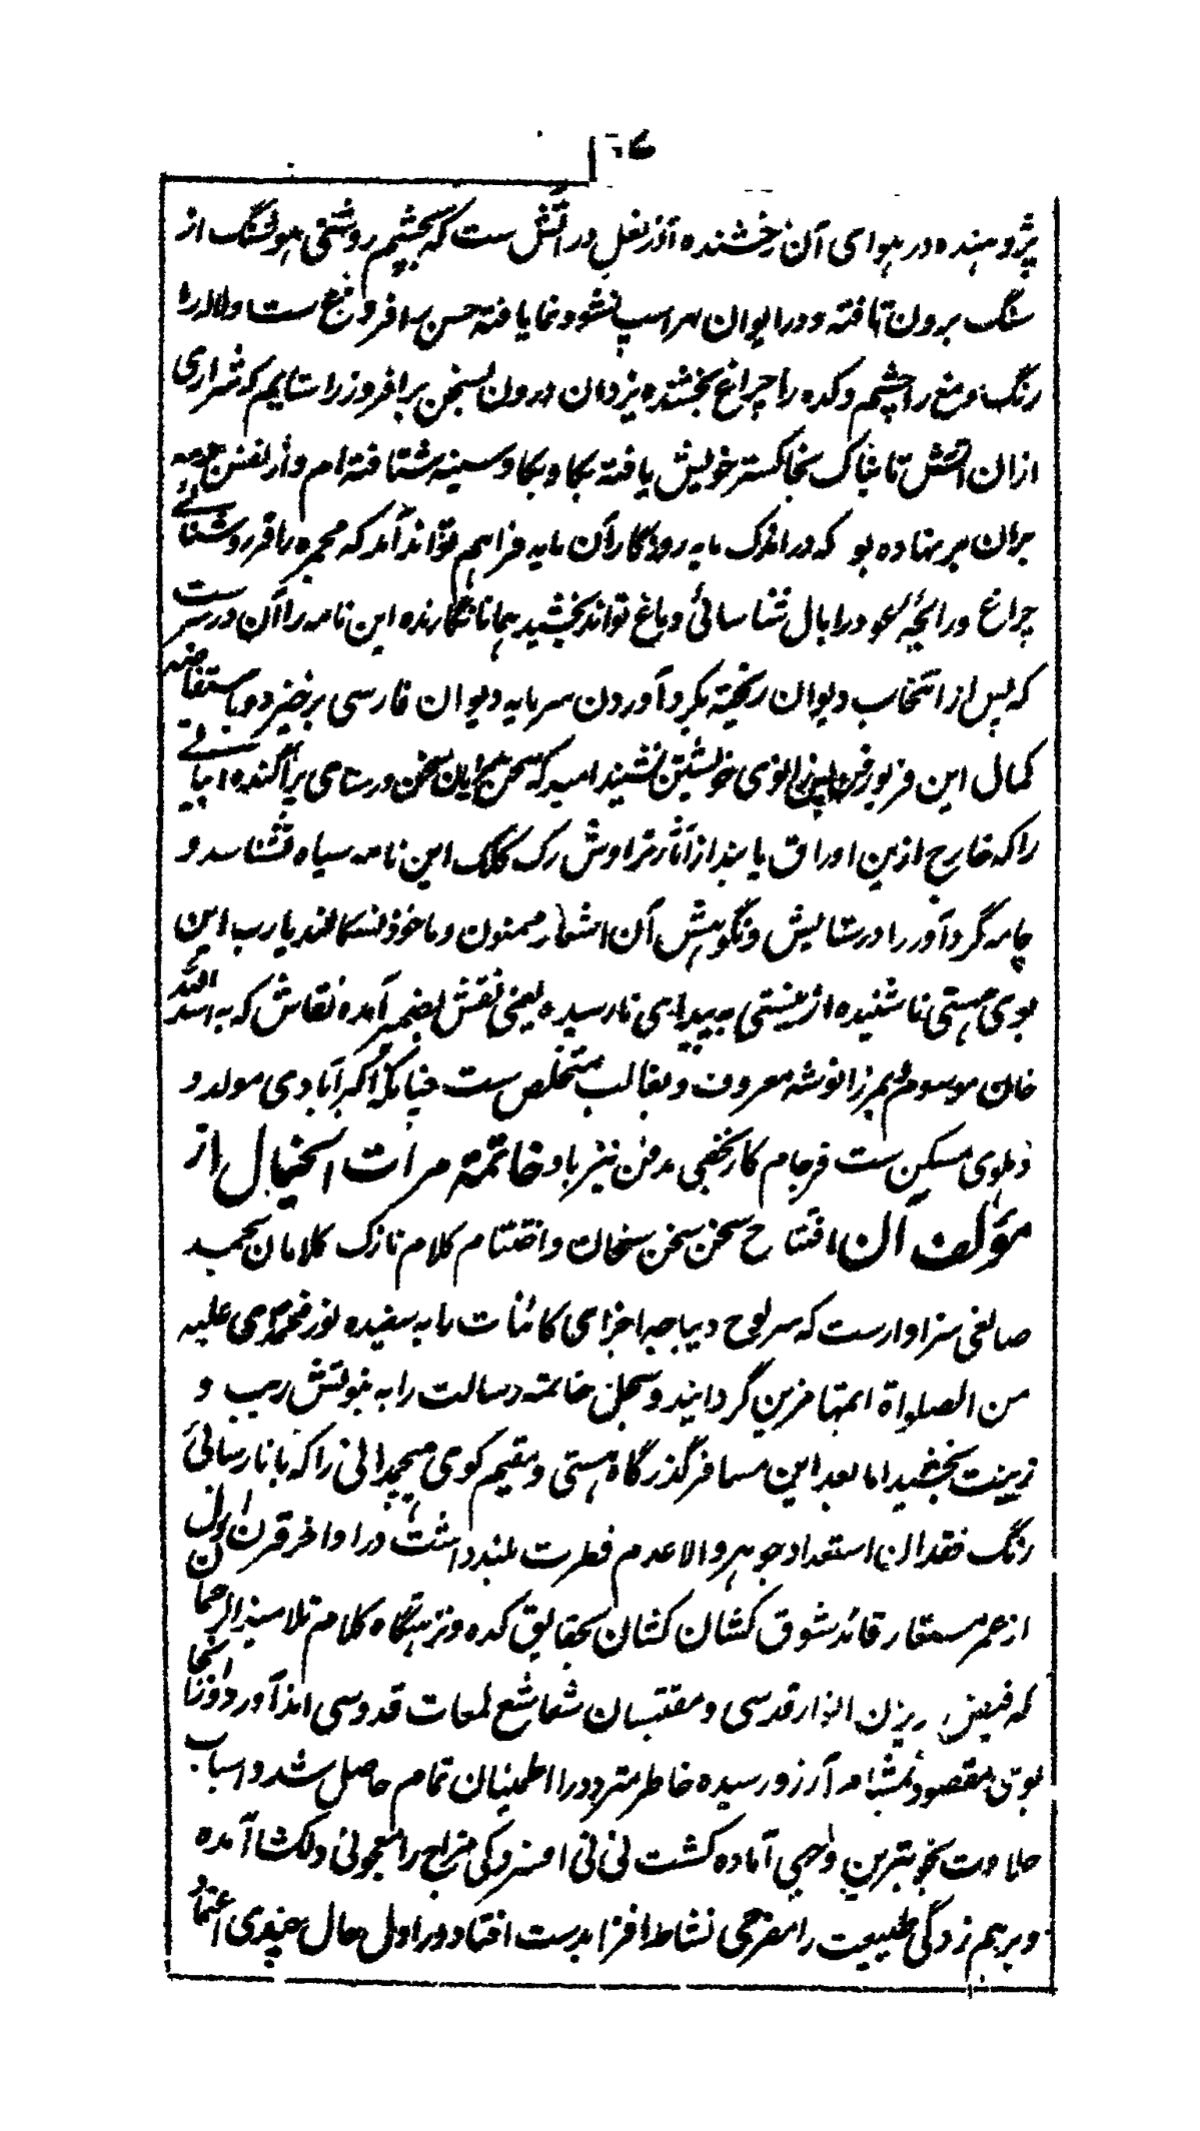 پژوهنده در هوای آن رخشنده آذر نعل در آتش ست که بچشم روشنی هوشنگ از
سنگ برون تافته و در ایوان لهراسپ نشوونما یافته حس را فروغ ست و لاله را
رنگ و مغ را چشم و کده را چراغ بخشنده یزدان درون بسخن برافروز را ستایم که شراری
ازان آتش تابناک بخاکستر خویش یافته بکاوکاو سینه شتافته ام و از نفس دمه
بران بر نهاده بو که در اندک مایه روزگاران مایه فراهم تواند آمد که مجمره را فر روشنائے
چراغ و رائحهٔ عود را بال شناسائی دماغ تواند بخشید همانا نگارنده این نامه را آن در سر ست
که پس از انتخاب دیوان ریخته بگرد آوردن سرمایه دیوان فارسی برخیزد و باستفاضه
کمال این فریورفن پس زانوی خویشتن نشیند امید که سخن سرایان سخنورستای پراگنده ابیاتے
را که خارج ازین اوراق یابند از آثار تراوش رگ کلک این نامه سیاه نشناسند و
چامه گردآور را در ستایش و نکوهش آن اشعار ممنون و ماخوذ نسگالند یارب این
بوی هستی ناشنیده از نیستی به پیدایی نارسیده یعنی نقش بضمیر آمده نقاش که به اسد اللہ
خان موسوم و بمیرزا نوشه معروف و بغالب متخلص ست چنانکه اکبرآبادی مولد و
دهلوی مسکن ست فرجام کار نجفی مدفن نیز باد خاتمهٔ مرات الخیال از
مؤلف آن افتتاح سخن سخن سنجان و اختتام کلام نازک کلامان بحمد
صانعی سزاوارست که سرلوح دیباچه اجزای کائنات را به سفیده نور محمدی علیه
من الصلواة اتمها مزین گردانید و سجل خاتمه رسالت را به نبوتش زیب و
زینت بخشید اما بعد این مسافر گذرگاه هستی و مقیم کوی هیچمدانی را که با نارسائی
رنگ فقدان استعداد جوهر والا عدم فطرت بلند داشت در اواخر قرن اول
از عمر مستعار قائد شوق کشان کشان بحقایق کده و نزهتگاه کلام تلامیذ الرحمان
که فیض ریزن انوار قدسی و مقتبسان شعاشع لمعات قدوسی اند آورد و ازانجا
بوی مقصود بمشام آرزو رسیده خاطر متردد را اطمینان تمام حاصل شد و اسباب
حلاوت بخوبترین وجهی آماده گشت نی نی افسردگی مزاج را معجونی دلکشا آمده
و برهم زدگی طبیعت را مفرحی نشاط افزا بدست افتاد در اول حال چندی اعتماد